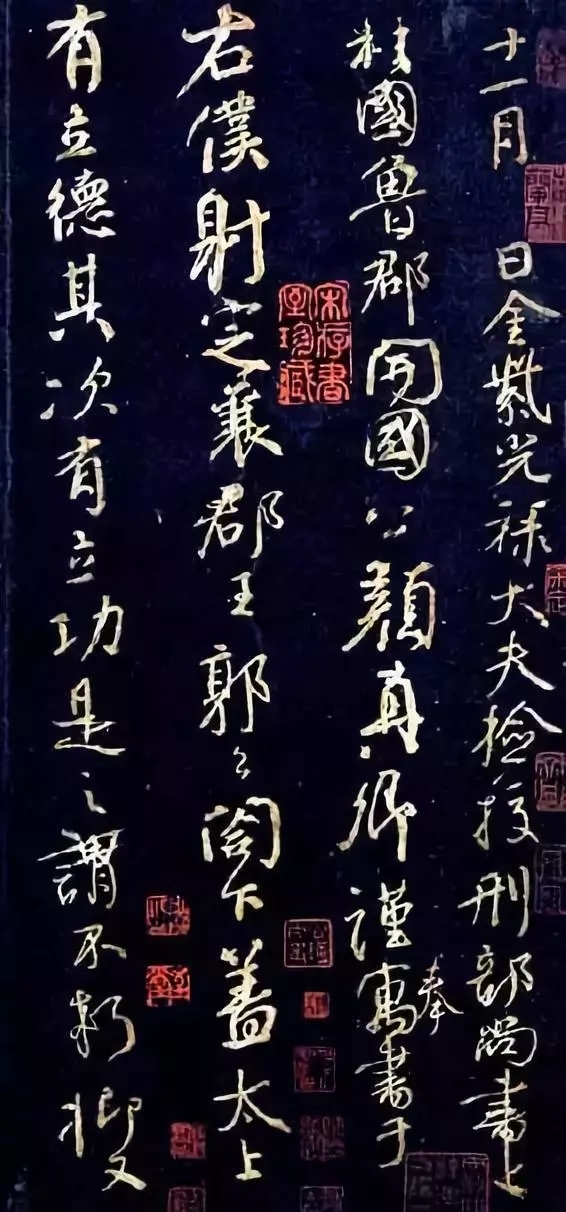 十一月 日金紫光祿大夫檢挍刑部尚書上
柱國魯郡開國公顏真卿謹奉寓書于
右僕射定襄郡王郭公閣下蓋太上
有立德其次有立功是之謂不朽抑又
宋存書室珍藏